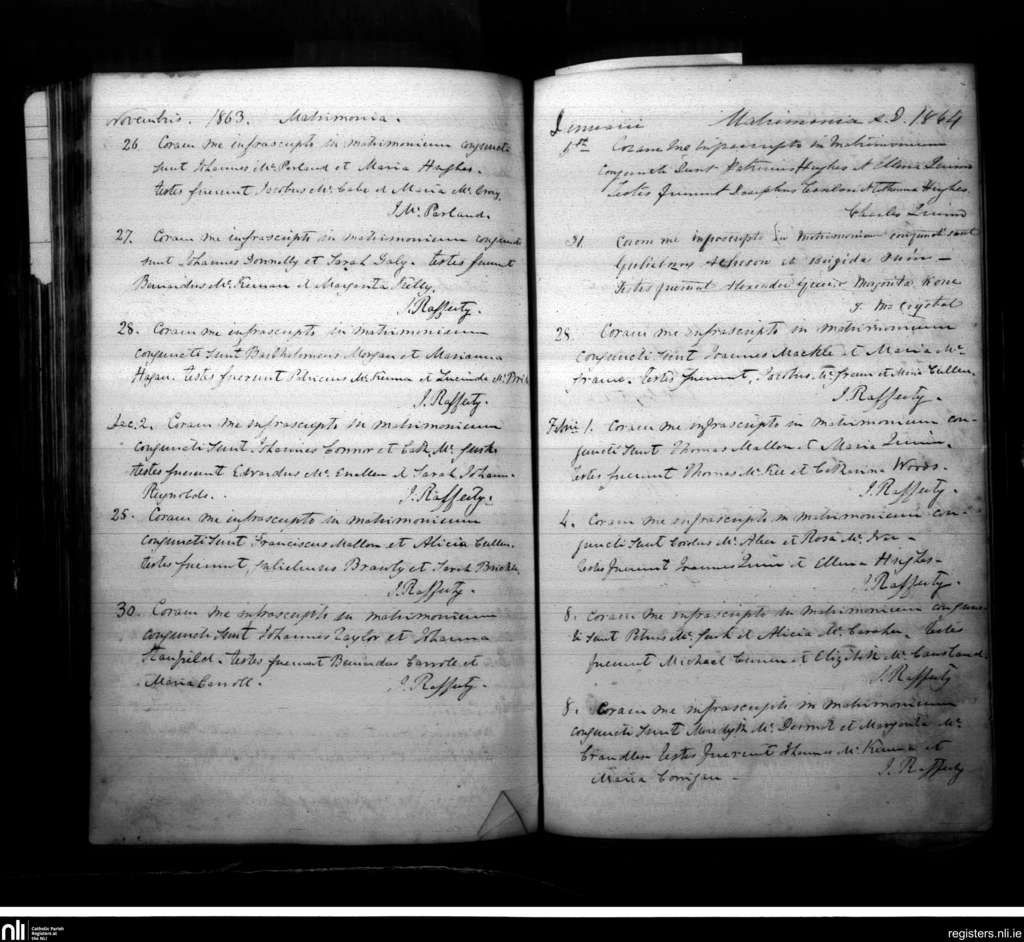 Novembris. 1863. Matrimonia.
26. Coram me infrascripto in matrimonium conjuncti
sunt Johannes McParland et Maria Hughes.
testes fuerunt Jacobus McCabe et Maria McCrory
J McParland.
27. Coram me infrascripto in matrimonium conjuncti
sunt Johannes Donnelly et Sarah Daly. testes fuerunt
Bernardus McKernan et Margarita Reilly,
J. Rafferty.
28. Coram me infrascripto in matrimonium
conjuncti Sunt Bartholomeus Morgan et Marianna
Hagan. testes fuerunt Patricius McKenna et Lucinda
J. Rafferty.
Dec. 2. Coram me infrascripto in matrimonium
conjuncti Sunt Johannes Connor et Cath Mc
testes fuerunt Edvardus McEnellen et Sarah Johan.
Reynolds. J. Rafferty.
25. Coram me infrascripto in matrimonium
conjuncti Sunt Franciscus Mallon et Alicia Cullen.
testes fuerunt, Gulielmus Brawly et Sarah
J. Rafferty.
30. Coram me infrascripto in matrimonium
conjuncti Sunt Johannes Taylor et Johanna
Stanfield. testes fuerunt Bernardus Carroll et
Maria Carroll. J. Rafferty.
Januarii Matrimonia A.D. 1864
Coram Me infrascripto in Matrimonium
Conjuncti Sunt Patricius Hughes et Ellena Quinn
Testes fuerunt Josephus Conlon et Hughes
Charles Quinn
21. Coram me infrascripto in Matrimonium conjuncti sunt
Gulielmus Acheson et Brigida
testes fuerunt Alexander Greer Margarita Kane
McCrystal
28. Coram me infrascripto in matrimonium
conjuncti Sunt Joannes Mackle et Maria Mc
Testes fuerunt, Jacobus et Cullen.
J. Rafferty.
1. Coram me infrascripto in matrimonium con-
juncti Sunt Thomas Mallon et Maria Quinn.
Testes fuerunt Thomas McKee et Catharina Woods.
J. Rafferty.
4. Coram me infrascripto in matrimonium con-
juncti Sunt et Rosa Mc
testes fuerunt Joannes Quin et Ellena Hughes-
J. Rafferty.
8. Coram me infrascripto in matrimonium conjunc-
ti sunt Petrus Mc et Alicia Mc Testes
fuerunt Michael et Elizabeth McCausland.
J. Rafferty
8. Coram me infrascripto in matrimonium
conjuncti Sunt Mc et Margarita Mc
Testes fuerunt Thomas McKenna et
Maria Corrigan - J. Rafferty
nli Catholic Parish
Registers at
the NLI
registers.nli.ie